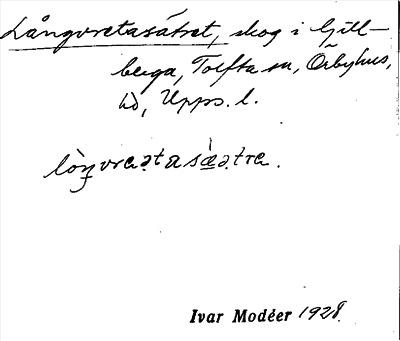 Långvretasätret, skog i Gill-
berga, Tolfta sn, Örbyhus,
hd, Upps. l.
lòŋvreətasæ̀ətrə.
Ivar Modéer 1928.